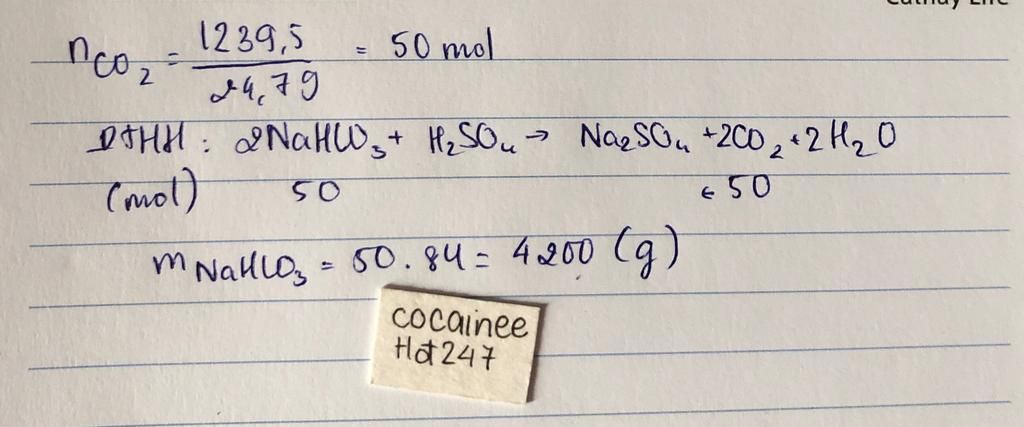 nCO2 = 1239,5 / 24,79 = 50 mol
PTHH : 2NaHCO3 + H2SO4 → Na2SO4 + 2CO2 + 2H2O
(mol) 50 ← 50
mNaHCO3 = 50 . 84 = 4200 (g)
cocainee
Hot247